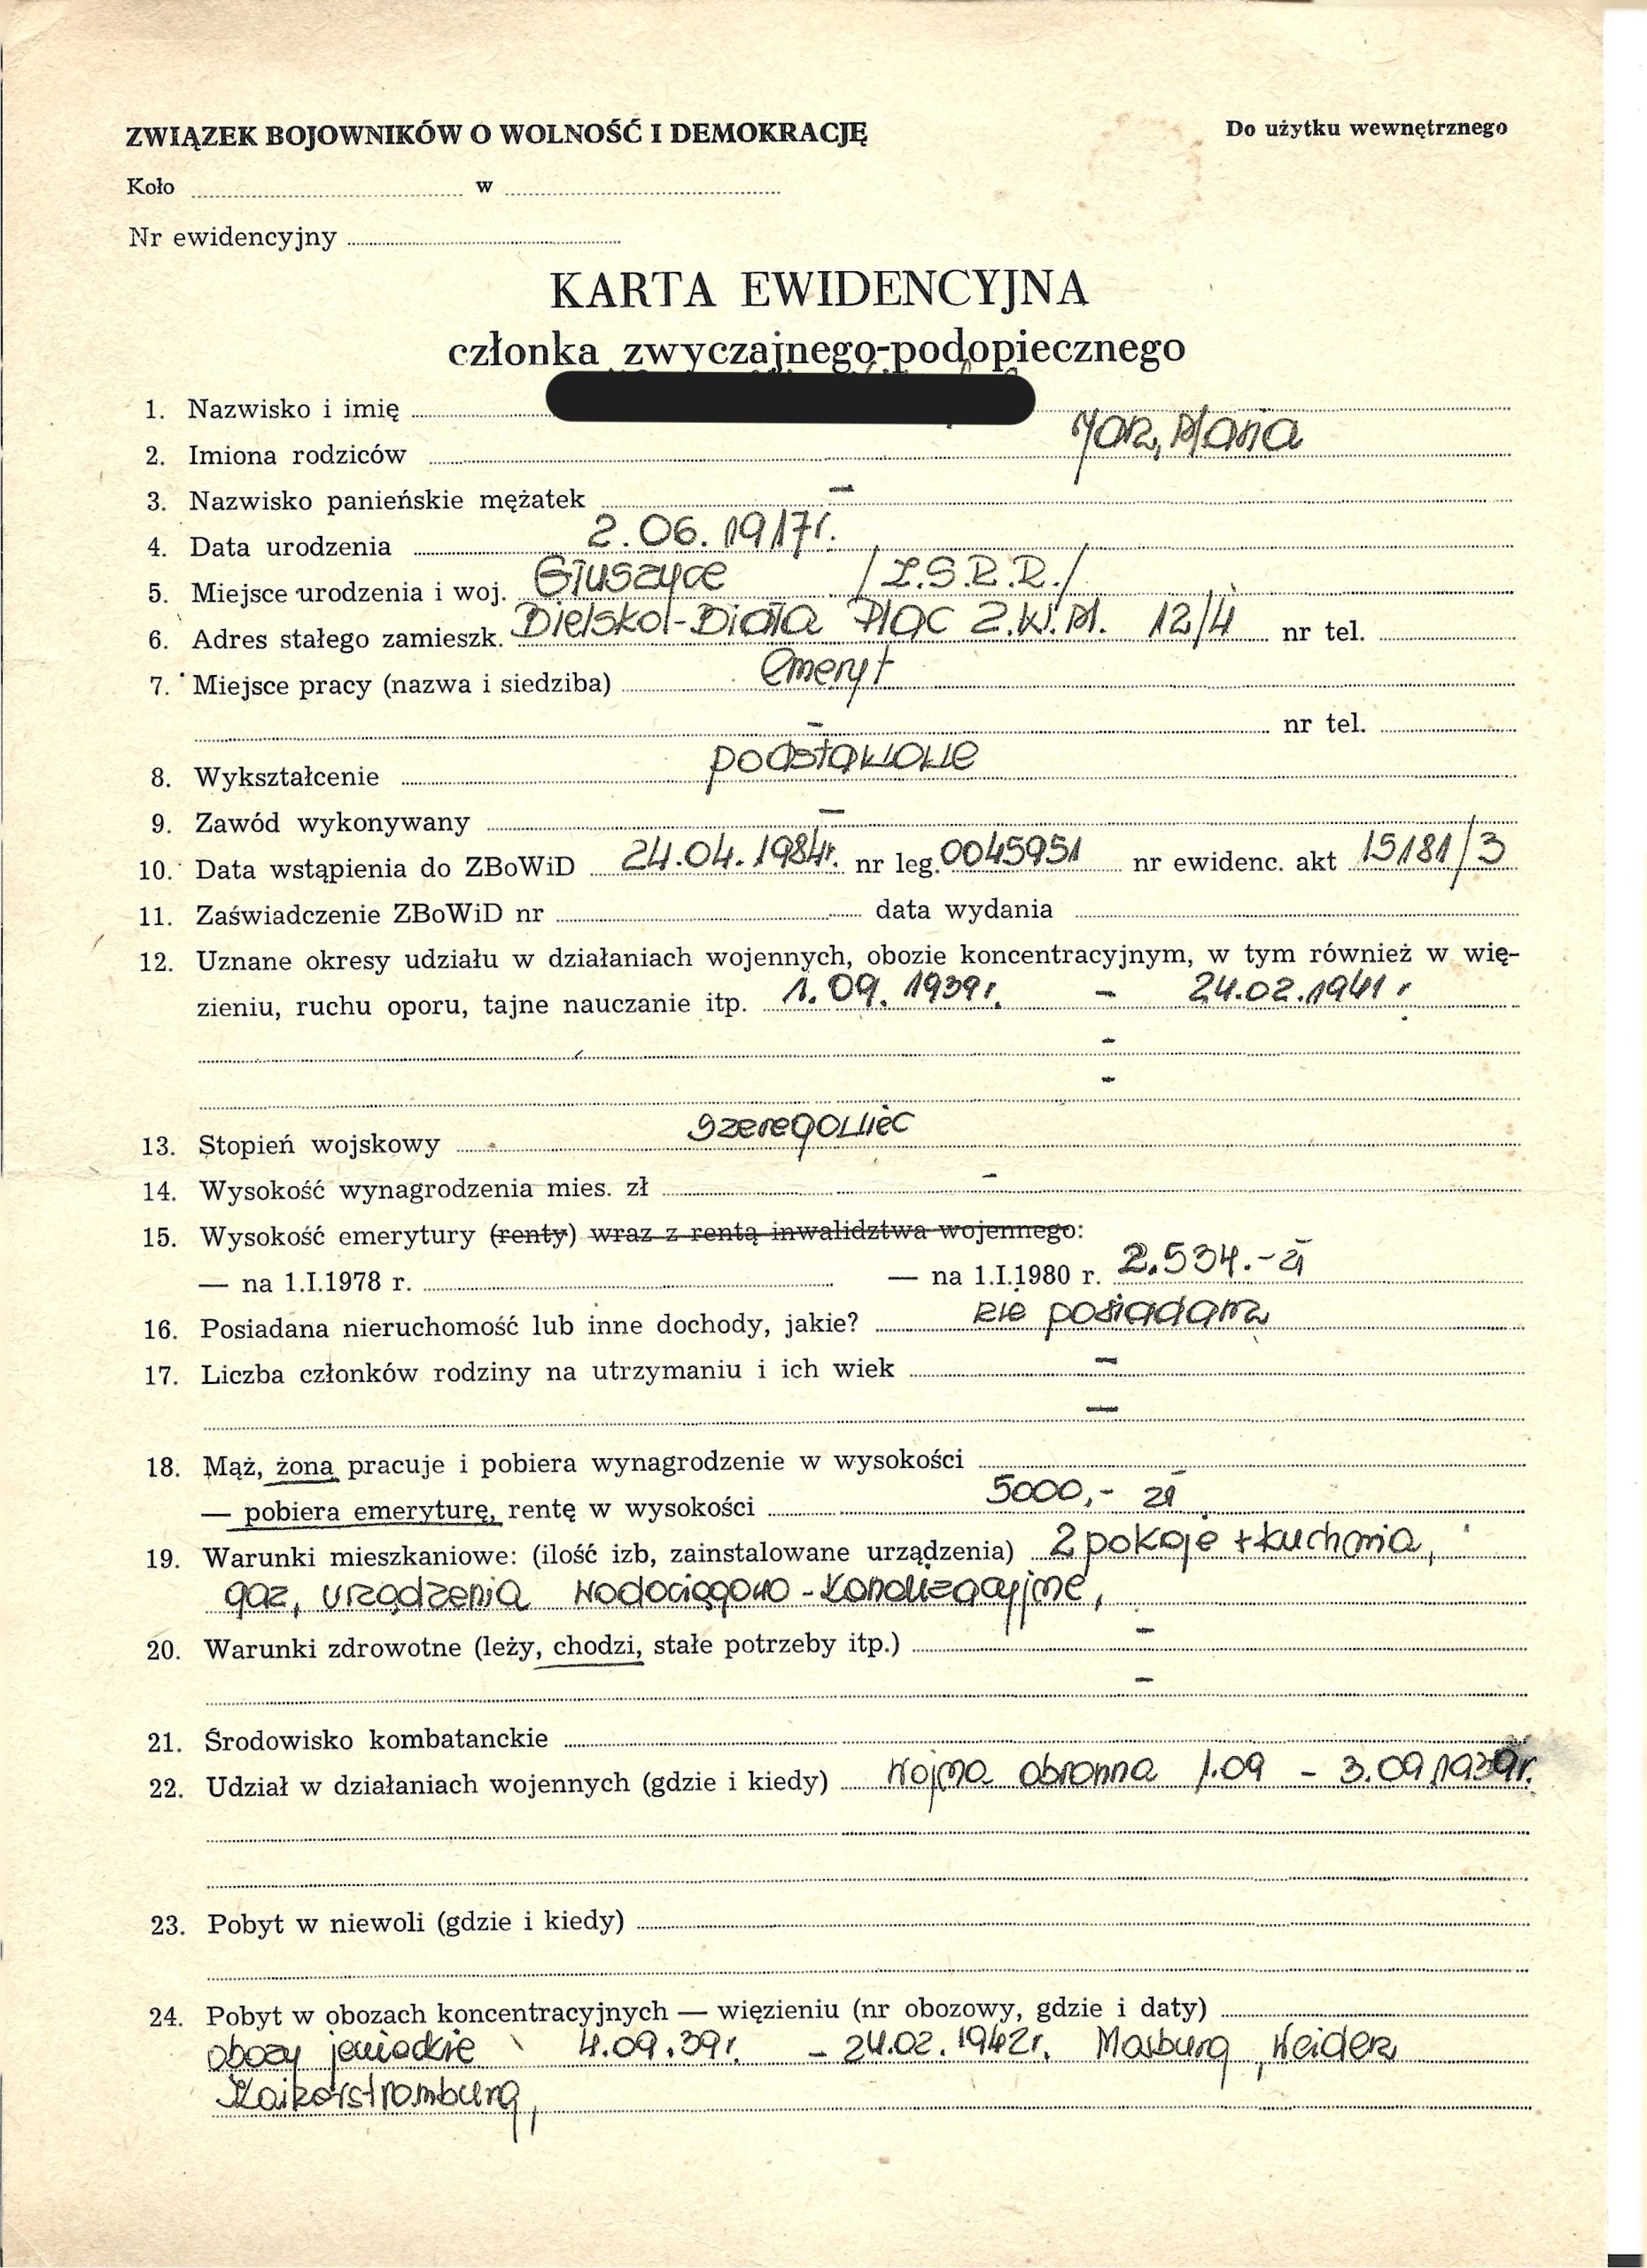 ZWIĄZEK BOJOWNIKÓW O WOLNOŚĆ I DEMOKRACJĘ Do użytku wewnętrznego
Koło w
Nr ewidencyjny
KARTA EWIDENCYJNA
członka zwyczajnego-podopiecznego
1. Nazwisko i imię
2. Imiona rodziców Jan, Maria
3. Nazwisko panieńskie mężatek –
4. Data urodzenia 2.06.1917r.
5. Miejsce urodzenia i woj. Głuszyce /Z.S.R.R./
6. Adres stałego zamieszk. Bielsko-Biała Plac Z.W.M. 12/4 nr tel.
7. Miejsce pracy (nazwa i siedziba) emeryt
– nr tel.
8. Wykształcenie podstawowe
9. Zawód wykonywany –
10. Data wstąpienia do ZBoWiD 24.04.1984r. nr leg. 0045951 nr ewidenc. akt 15181/3
11. Zaświadczenie ZBoWiD nr data wydania
12. Uznane okresy udziału w działaniach wojennych, obozie koncentracyjnym, w tym również w wię-
zieniu, ruchu oporu, tajne nauczanie itp. 1.09.1939r. – 24.02.1941r
–
–
13. Stopień wojskowy szeregowiec
14. Wysokość wynagrodzenia mies. zł –
15. Wysokość emerytury (renty) wraz z rentą inwalidztwa wojennego:
— na 1.I.1978 r. — na 1.I.1980 r. 2.534.- zł
16. Posiadana nieruchomość lub inne dochody, jakie? nie posiadam
17. Liczba członków rodziny na utrzymaniu i ich wiek –
–
18. Mąż, żona pracuje i pobiera wynagrodzenie w wysokości
— pobiera emeryturę, rentę w wysokości 5000,- zł
19. Warunki mieszkaniowe: (ilość izb, zainstalowane urządzenia) 2 pokoje + kuchnia,
gaz, urządzenia wodociągowo-kanalizacyjne,
20. Warunki zdrowotne (leży, chodzi, stałe potrzeby itp.) –
–
21. Środowisko kombatanckie
22. Udział w działaniach wojennych (gdzie i kiedy) wojna obronna 1.09 – 3.09.1939r.
23. Pobyt w niewoli (gdzie i kiedy)
24. Pobyt w obozach koncentracyjnych — więzieniu (nr obozowy, gdzie i daty)
obozy jenieckie 4.09.39r. – 24.02.1942r. Marburg, Weiden